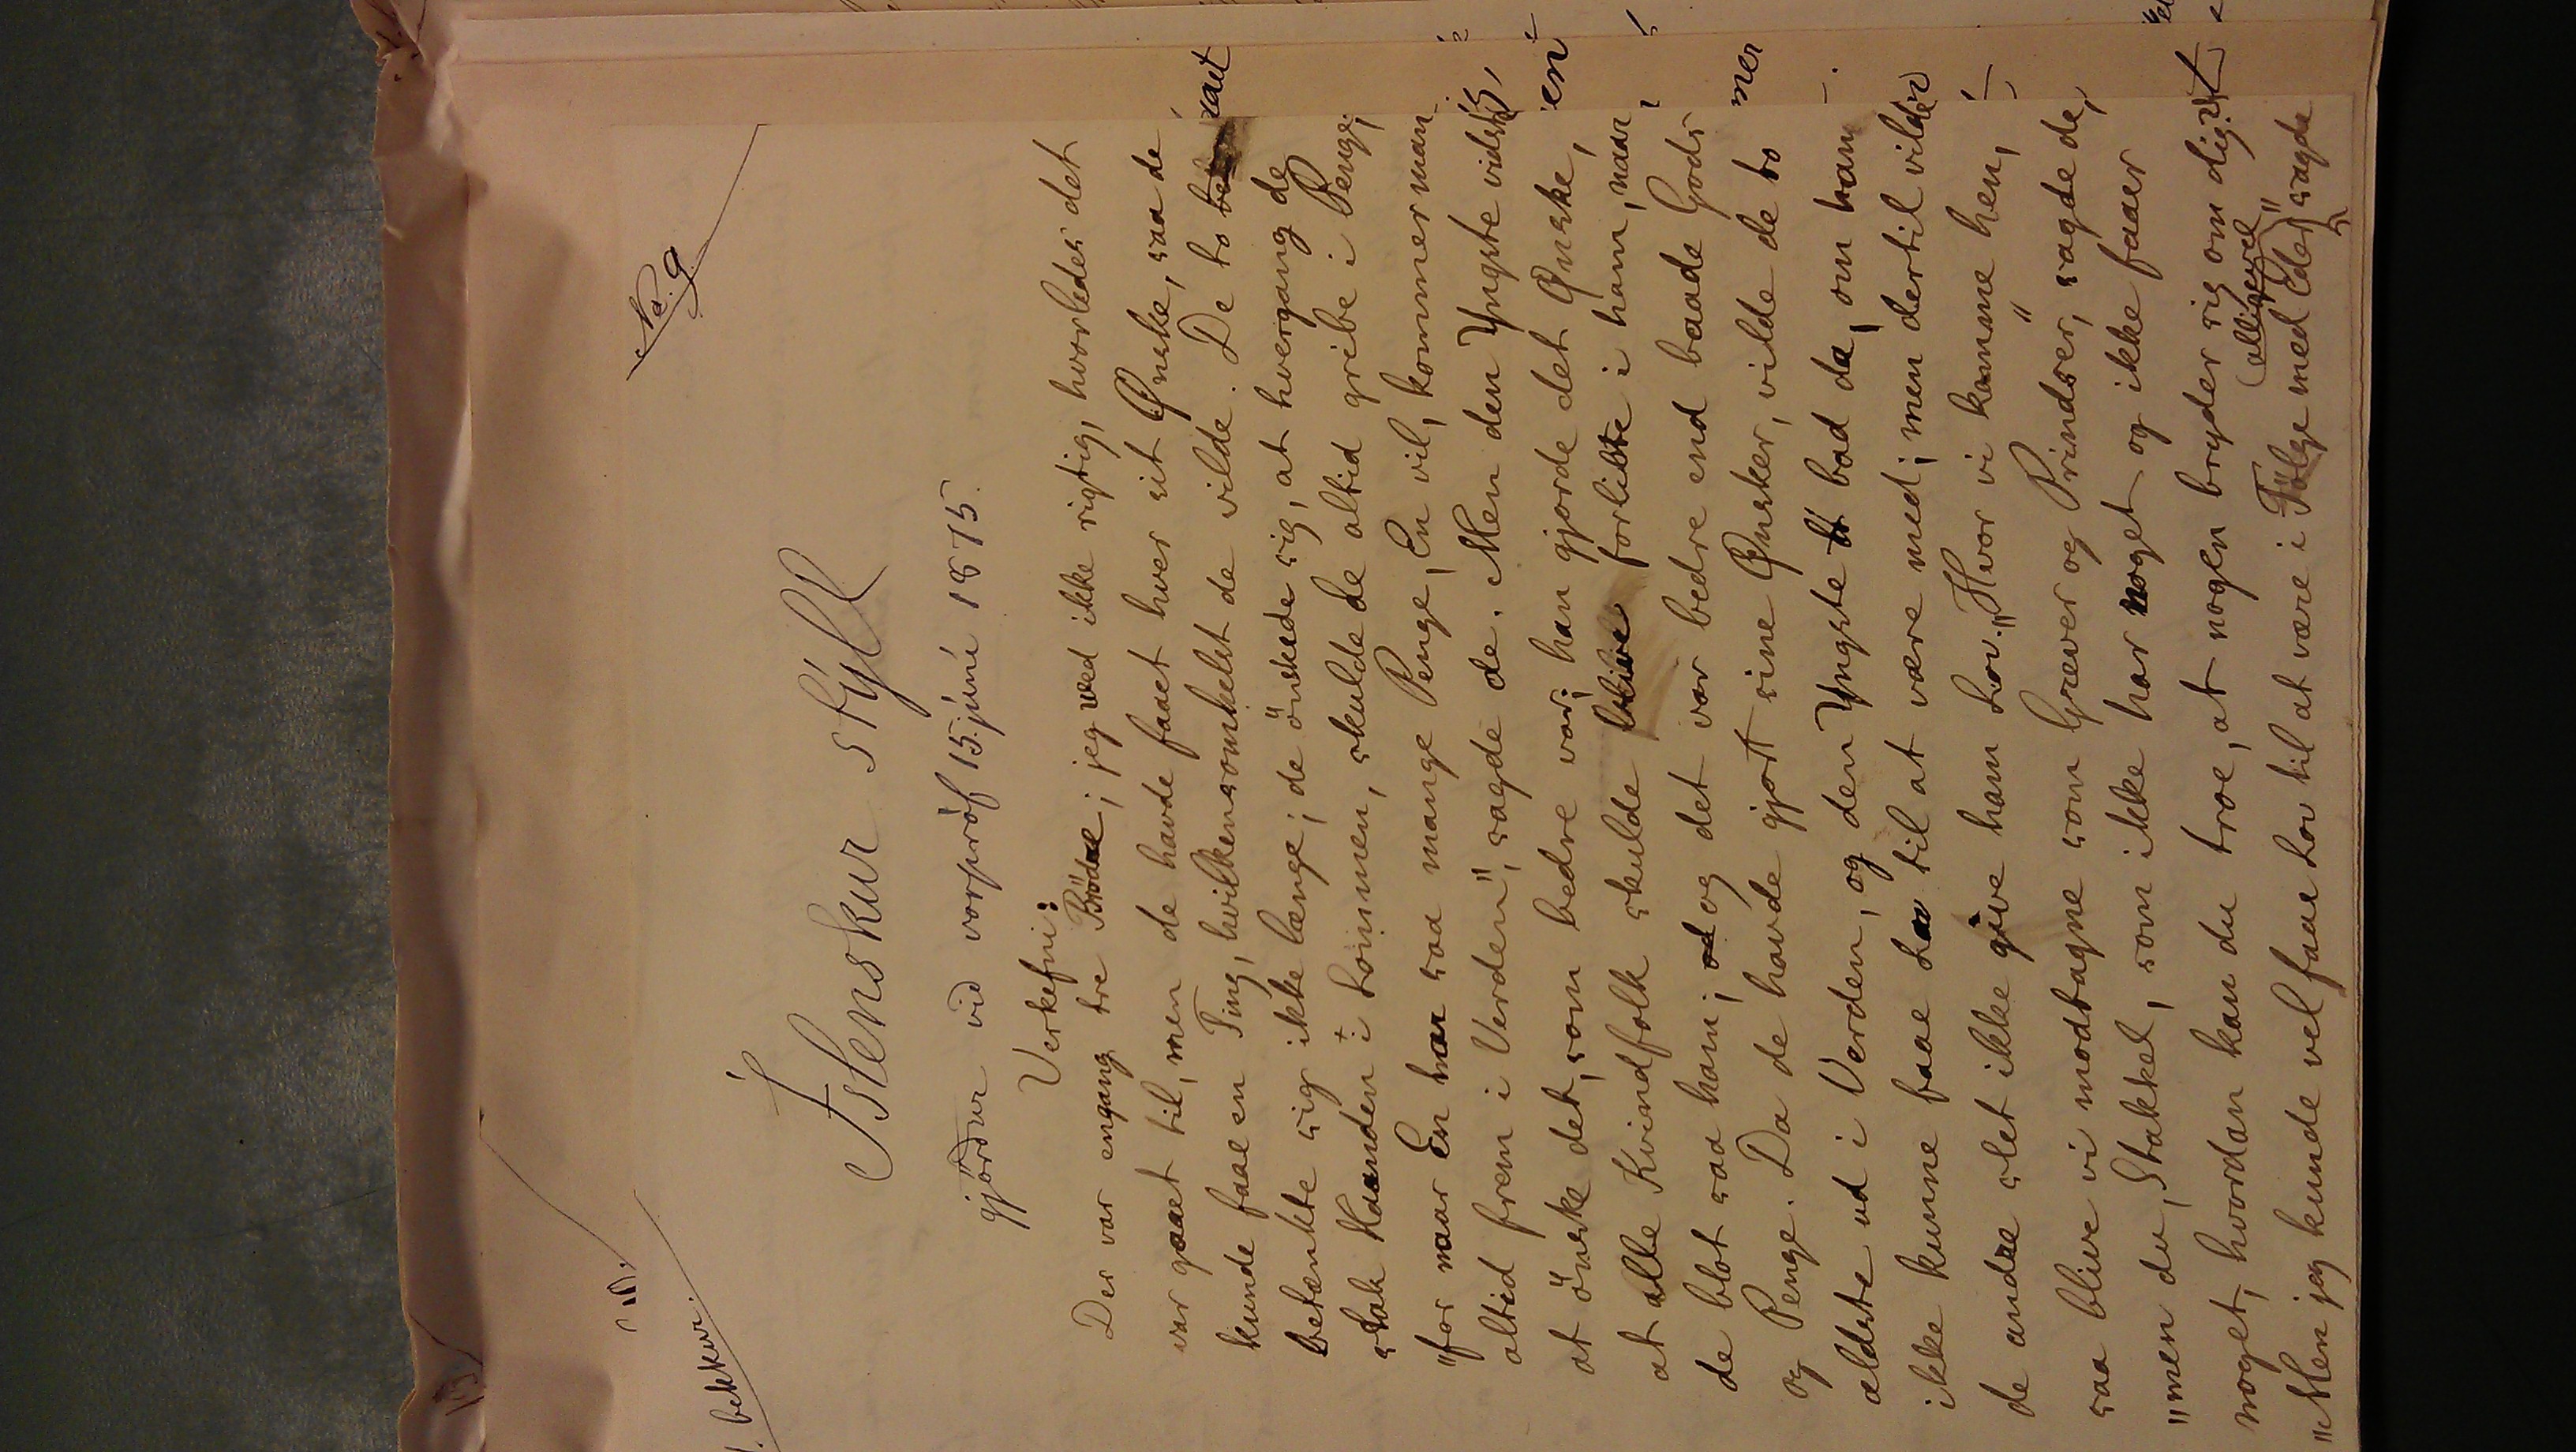 . bekkur.
No. 9
Íslenskur stýll
gjörður við vorpróf 15. júní 1875.
Verkefni:
Der var engang tre Brödre; jeg ved ikke rigtig, hvorledes det
var gaaet til, men de havde faaet hver sit Ønske, saa de
kunde faae en Ting, hvilkensomhelst de vilde. De to be
betænkte sig ikke længe; de önskede sig, at hvergang de
stak Haanden i Lommen, skulde de altid gribe i Penge,
"for naar En har saa mange Penge, En vil, kommer man
altid frem i Verden", sagde de. Men den Yngste vidste
at önske det, som bedre var; han gjorde det Ønske,
at alle Kvindfolk skulde blive forlibte i ham, naar
de blot saa ham; od og det var bedre end baade Gods
og Penge. Da de havde gjort sine Ønsker, vilde de to
ældste ud i Verden, og den Yngste bad da, om han
ikke kunne faae Lov til at være med; men dertil vilde
de andre slet ikke give ham Lov. „Hvor vi komme hen,
saa blive vi modtagne som Grever og Prindser," sagde de,
„men du, Stakkel, som ikke har noget og ikke faaer
noget, hvordan kan du troe, at nogen bryder sig om dig?"
„Men jeg kunde vel faae Lov til at være i Fölge med Eder alligevel" sagde